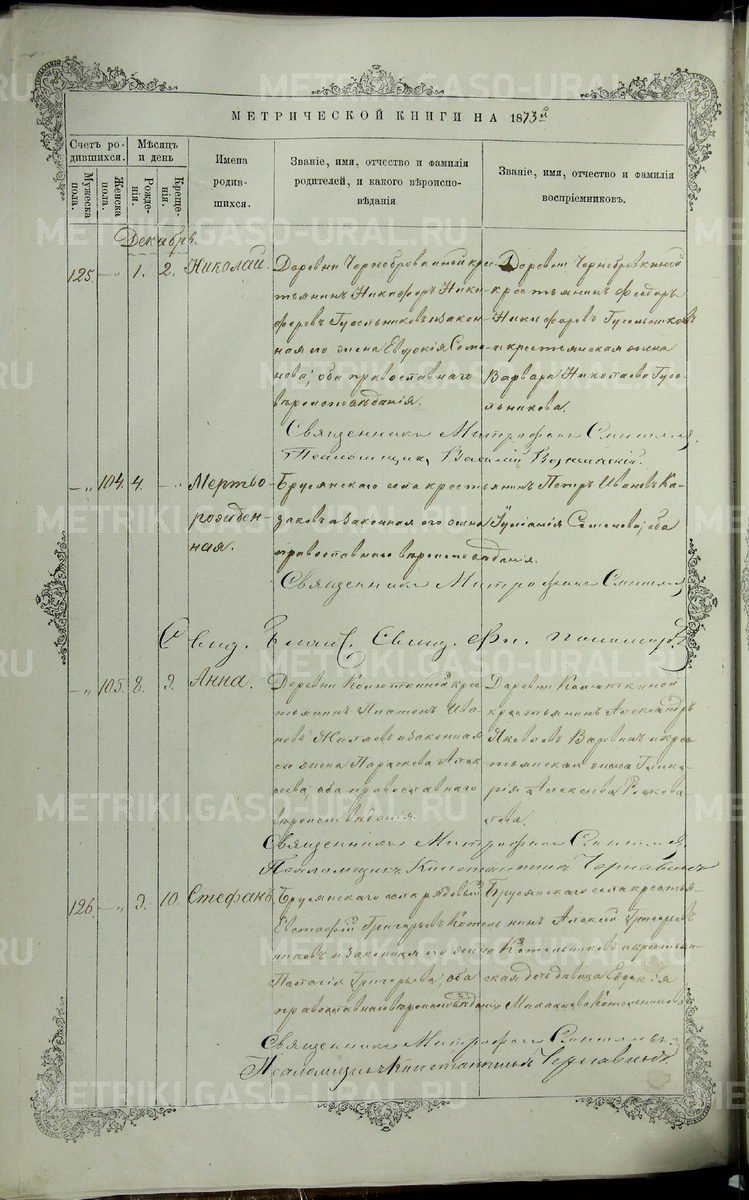 МЕТРИЧЕСКОЙ КНИГИ НА 1873й
Счетъ родившихся.
Мужеска пола.
Женска пола.
Мѣсяцъ и день
Рожденія.
Крещенія.
Имена родившихся.
Званіе, имя, отчество и фамилія родителей, и какого вѣроисповѣданія
Званіе, имя, отчество и фамилія воспріемниковъ.
Декабрь.
125. — „ 1. 2. Николай.
Деревни Чернобровкиной кре-
стьянинъ Никифоръ Ники-
форовъ Гусельниковъ и закон-
ная его жена Евдокія Семе-
нова; оба православнаго
вѣроисповѣданія.
Деревни Чернобровкиной
крестьянинъ Ѳедоръ
Никифоровъ Гусельниковъ
и крестьянская жена
Варвара Николаева Гусе-
льникова.
Священникъ Митрофанъ
Псаломщикъ Василій
— „ 104. 4. — „ Мертво-
рожден-
ная.
Брусянскаго села крестьянинъ Петръ Ивановъ Ка-
заковъ и законная его жена Семенова; оба
православнаго вѣроисповѣданія.
Священникъ Митрофанъ
— „ 105. 8. 9. Анна.
Деревни Колюткиной кре-
стьянинъ Платонъ Ива-
новъ и законная
его жена Параскева Алек-
сѣева, оба православнаго
вѣроисповѣданія.
Деревни Колюткиной
крестьянинъ Александръ
Яковлевъ и крес-
тьянская жена
Алексѣева
Священникъ Митрофанъ
Псаломщикъ Константинъ Чернавинъ
126. — „ 9. 10. Стефанъ
Брусянскаго села рядовый
Евстафій Григорьевъ Котель-
никовъ и законная его жена
Пелагія Григорьева; оба
православнаго вѣроисповѣданія
Брусянскаго села крестья-
нинъ Алексѣй Григорьевъ
Котельниковъ и крестьян-
ская дочь дѣвица Евдокія
Михайлова Котельникова
Священникъ Митрофанъ
Псаломщикъ Константинъ Чернавинъ
METRIKI.GASO-URAL.RU